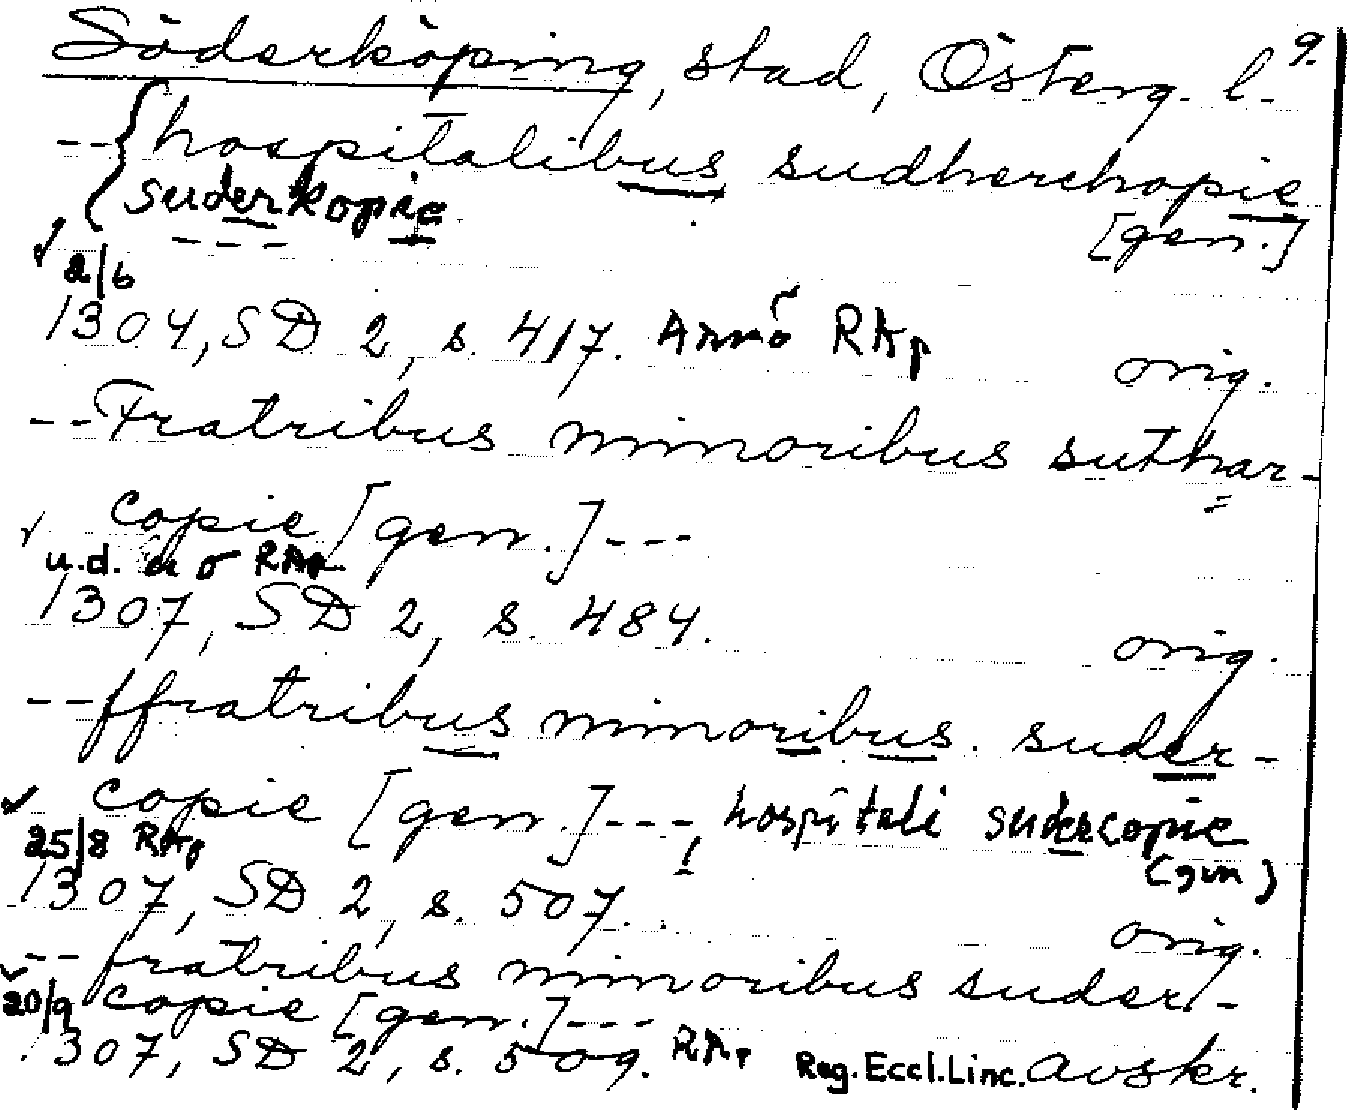 Söderköping, stad, Österg. l. 9.
-- hospitalibus sudherchopie
suderkopie [gen.]
2/6
1304, SD 2, s. 417. Arnö RAp orig.
-- Fratribus minoribus suthar-
copie [gen.] ---
u.d. u o RAp
1307, SD 2, s. 484. orig.
-- ffratribus minoribus suder-
copie [gen.] ---, hospitali sudercopie
25/8 RAp (gen)
1307, SD 2, s. 507. orig.
-- fratribus minoribus suder-
20/9 copie [gen.] ---
1307, SD 2, s. 509. RAp Reg. Eccl. Linc. avskr.